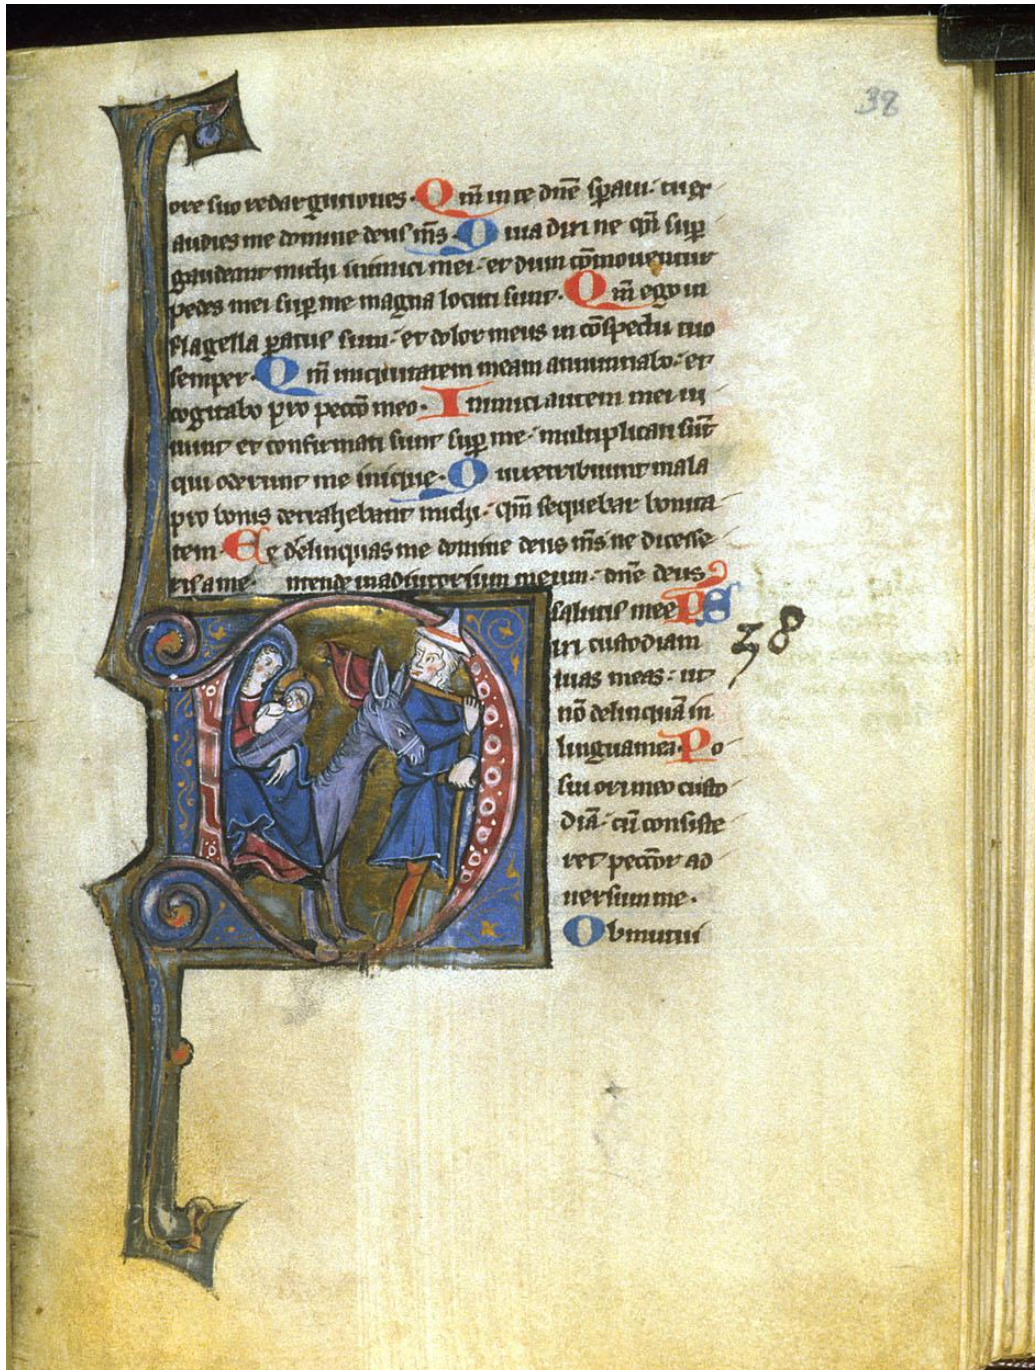 38
ore suo redargutiones. Qm̄ in te dn̄e sp̄aui: tu ex
audies me domine deus m̄s. Quia dixi ne qn̄ sup
gaudeant michi inimici mei: et dum cōmouentur
pedes mei sup me magna locuti sunt. Qm̄ ego in
flagella paratus sum: et dolor meus in cōspectu tuo
semper. Qm̄ iniquitatem meam annuntiabo: et
cogitabo pro peccō meo. Inimici autem mei ui
uunt et confirmati sunt sup me: multiplicati sūt
qui oderunt me inique. Qui retribuunt mala
pro bonis detrahebant michi: qm̄ sequebar bonita
tem. Ne delinquas me domine deus m̄s ne discesse
ris a me. Intende in adiutorium meum: dn̄e deus
salutis mee PS
ixi custodiam
38
uias meas: ut
nō delinquā in
lingua mea. Po
sui ori meo custo
diā: cū consiste
ret peccōr ad
uersum me.
Obmutui